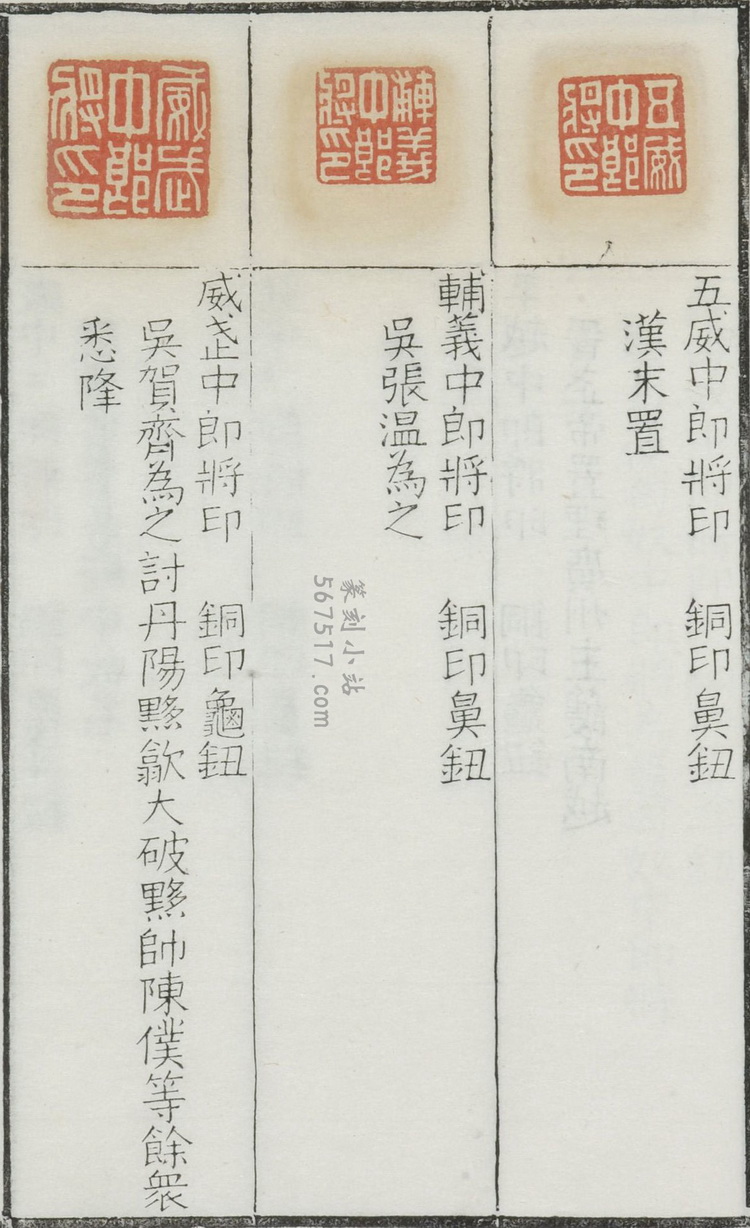 五威中郎將印
五威中郎將印　銅印鼻鈕
漢末置
輔義中郎將印
輔義中郎將印　銅印鼻鈕
吳張温為之
威武中郎將印
威武中郎將印　銅印龜鈕
吳賀齊為之討丹陽黟歙大破黟帥陳僕等餘衆
悉降
篆刻小站
567517.com